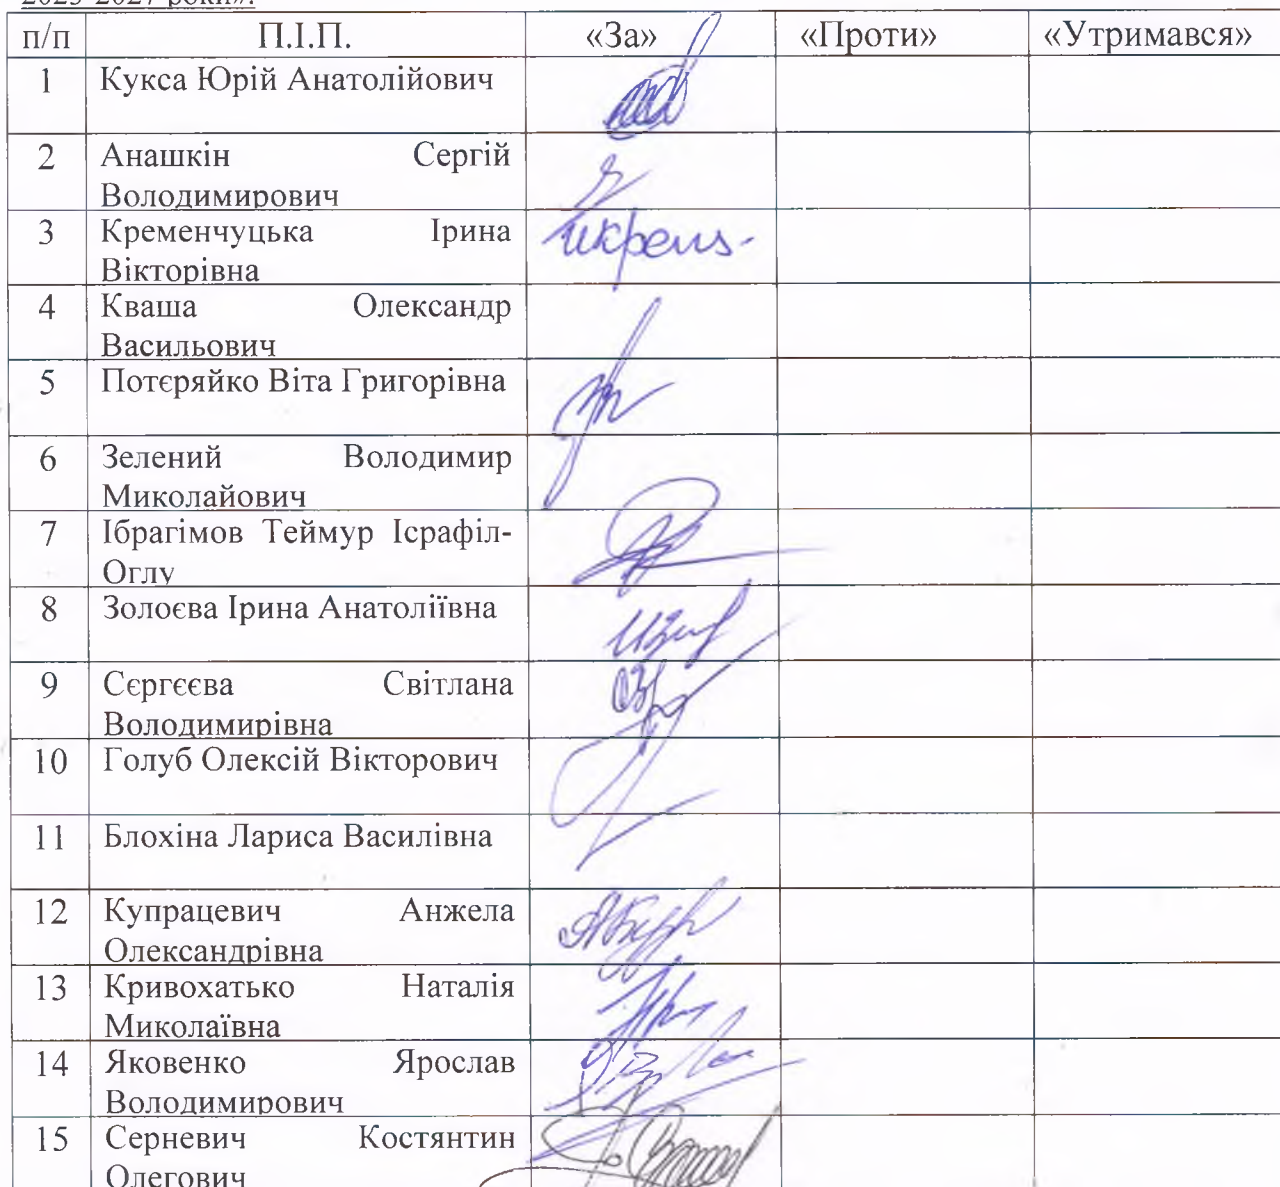 2023-2027 роки».
п/п П.І.П. «За» «Проти» «Утримався»
1 Кукса Юрій Анатолійович
2 Анашкін Сергій
Володимирович
3 Кременчуцька Ірина
Вікторівна
4 Кваша Олександр
Васильович
5 Потєряйко Віта Григорівна
6 Зелений Володимир
Миколайович
7 Ібрагімов Теймур Ісрафіл-
Оглу
8 Золоєва Ірина Анатоліївна
9 Сєргєєва Світлана
Володимирівна
10 Голуб Олексій Вікторович
11 Блохіна Лариса Василівна
12 Купрацевич Анжела
Олександрівна
13 Кривохатько Наталія
Миколаївна
14 Яковенко Ярослав
Володимирович
15 Серневич Костянтин
Олегович